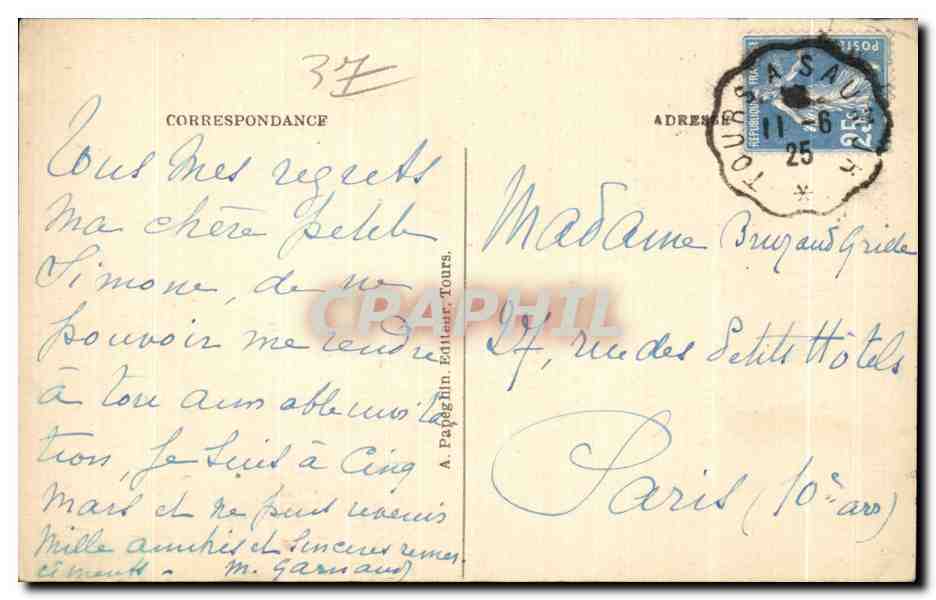 37
CORRESPONDANCE
Tous mes regrets
ma chère petite
Simone, de ne
pouvoir me rendre
à ton aimable invita
tion, je suis à Cinq
Mars et ne puis revenir
Mille amitiés et sincères remer
ciements - M. Garnaud
A. Papeghin, Editeur, Tours.
CPAPHIL
ADRESSE
REPUBLIQUE FRANC
POSTES
25c
TOURS A SAU
11 -6
25
Madame
27, rue des Petits Hôtels
Paris (10e arr)